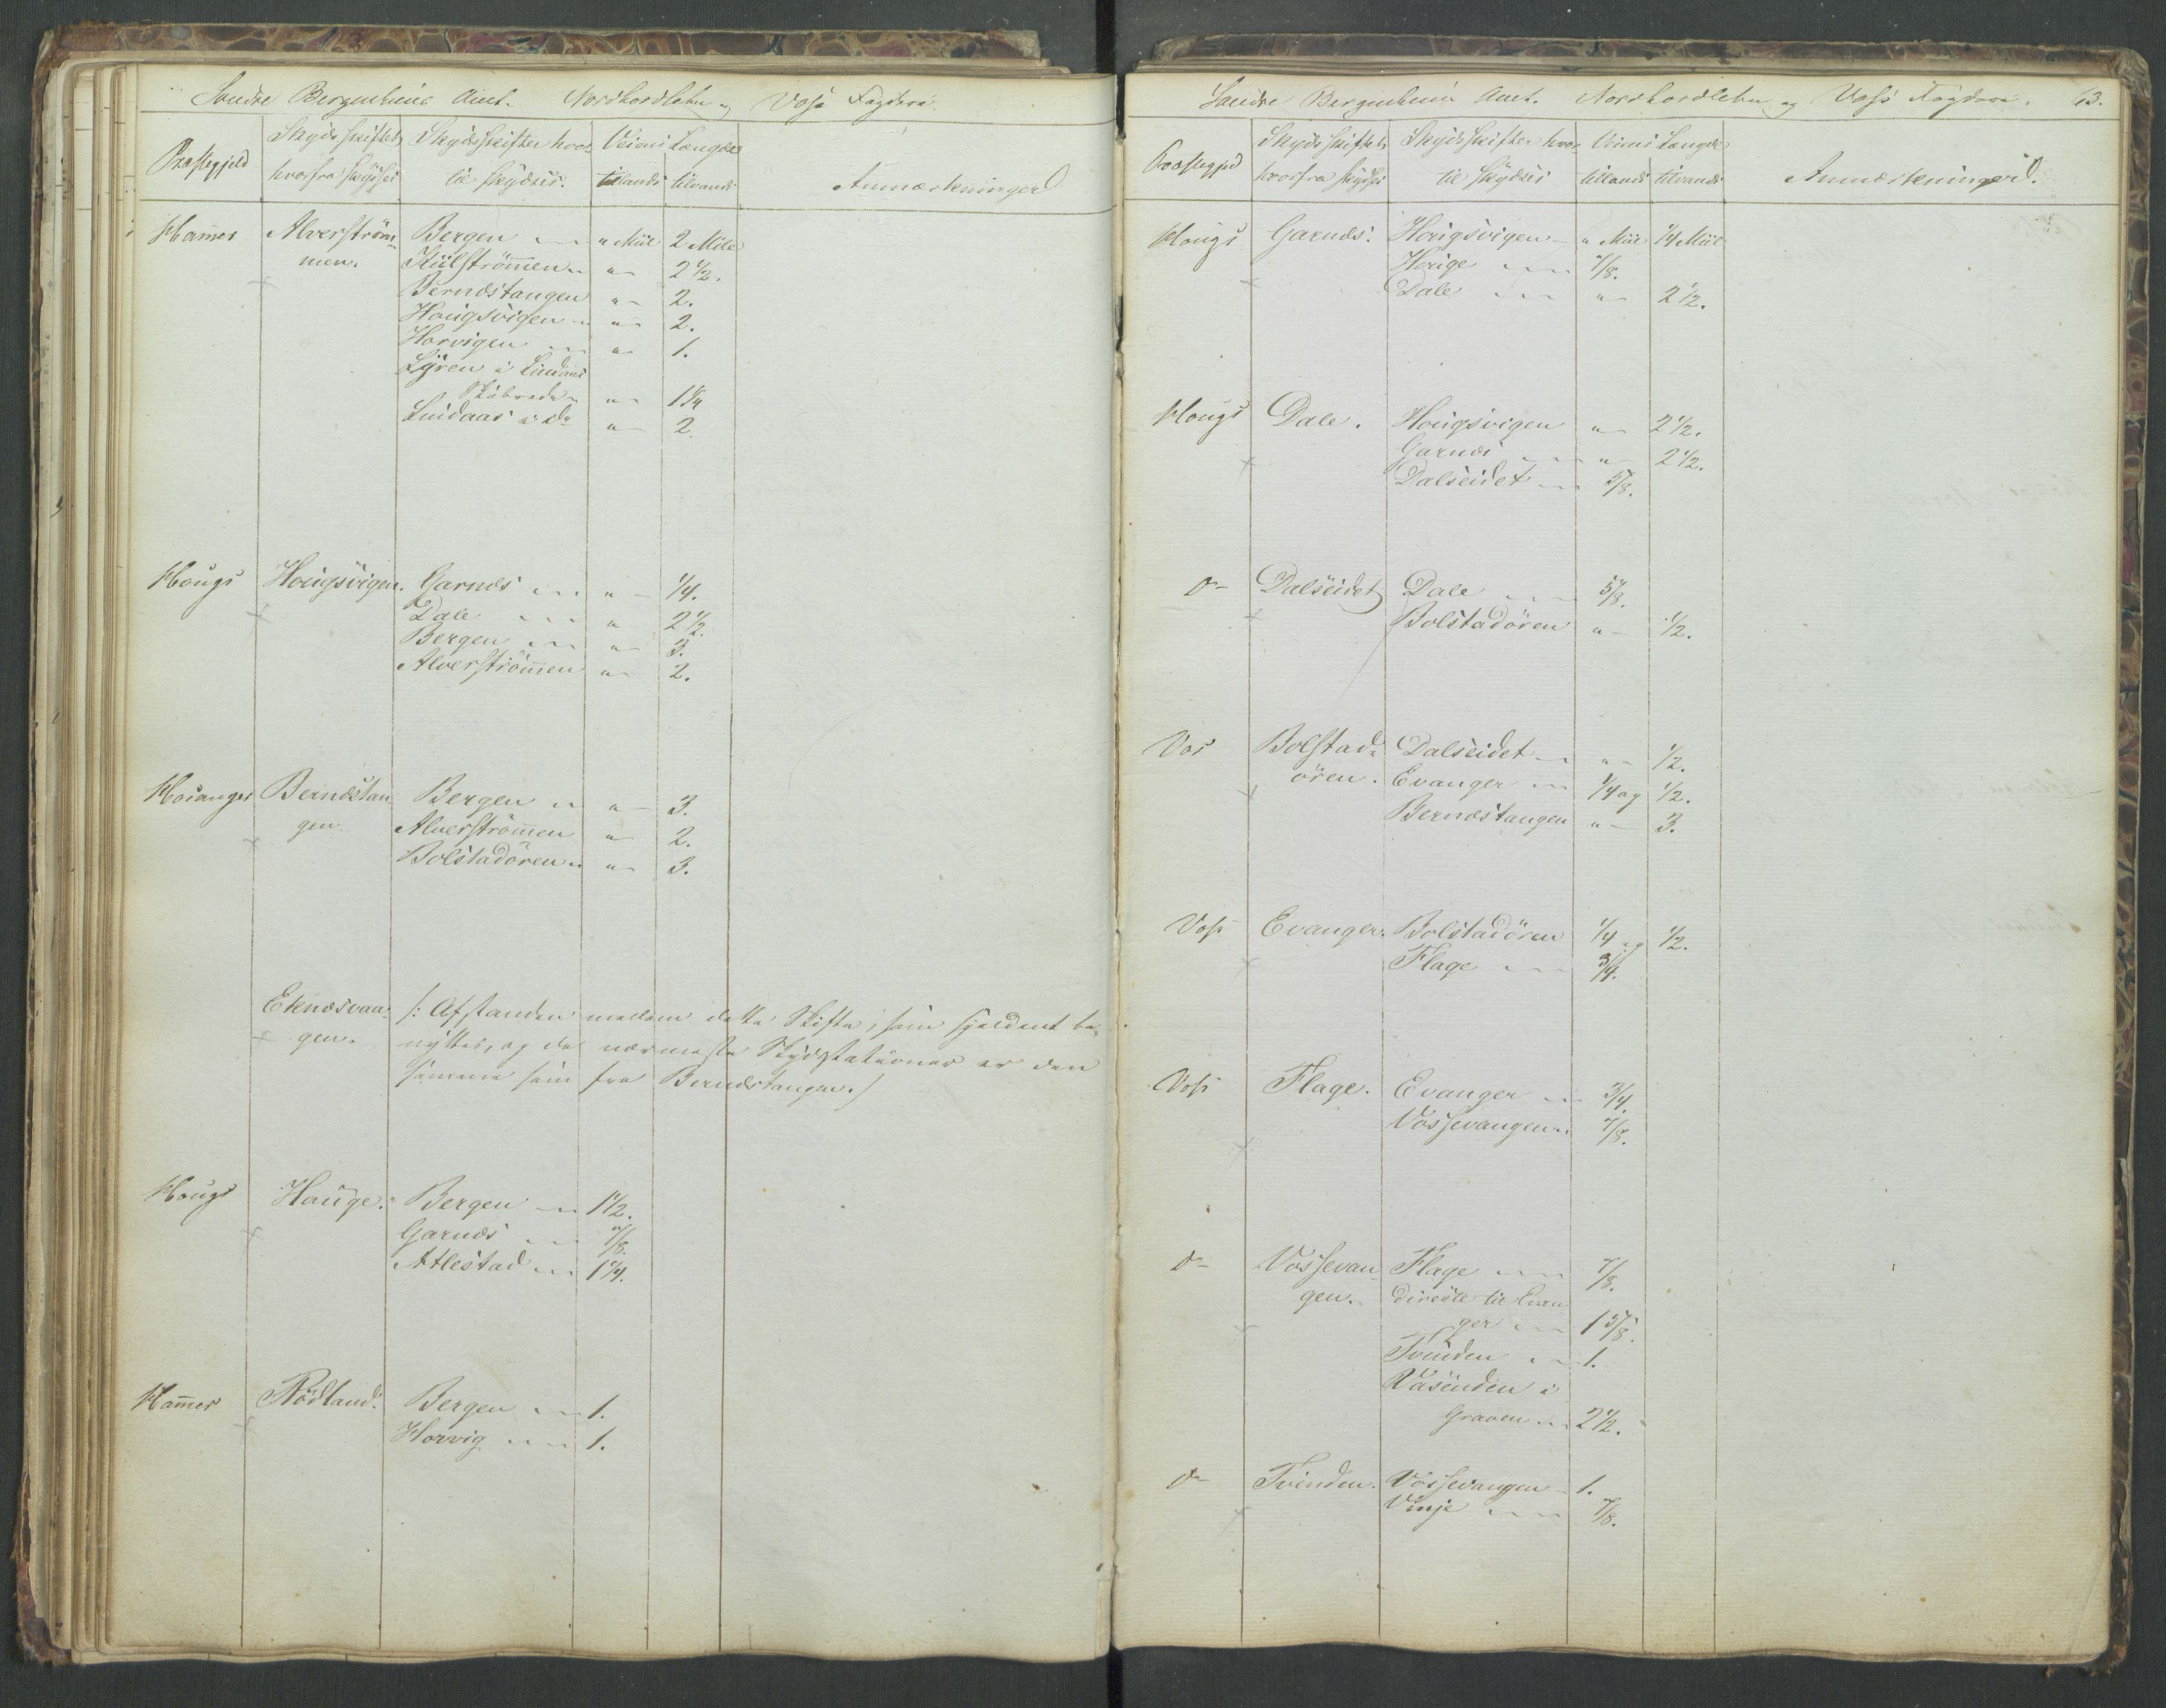 Söndre Bergenhuus Amt. Nordhordlehn og Voss Fogderi.
Præstegjeld
Skydsskiftet,
hvorfra skydses
Skydsskifter hvor-
til skydses.
Veiens Længde
tillands
tilvands
Anmærkninger
Ham̅er
Alverström-
men.
Bergen " Miil 2 Mile
Kiilström̅en " 2 1/2.
Bernæstangen " 2.
Hougsvigen " 2.
Horvigen " 1.
Lyren i Lindaas
Skibrede " 1 1/4
Lindaas i do " 2.
Hougs Hougsvigen. Garnæs " 1/4.
Dale " 2 1/2.
Bergen " 3.
Alverström̅en " 2.
Hosanger Bernæstan- Bergen " 3.
gen Alverström̅en " 2.
Bolstadören " 3.
Eknæsvaa- /: Afstanden mellem dette Skifte, som sjeldent be-
gen. nyttes, og de nærmeste Skydsstationer er den
samme som fra Bernæstangen. /
Hougs Hauge. Bergen 1 1/2.
Garnæs 7/8.
Atlestad 1 1/4.
Ham̅er Rödland. Bergen 1.
Horvig 1.
Söndre Bergenhuus Amt. Nordhordlehn og Voss Fogderi. 63.
Præstegjeld
Skydsskiftet,
hvorfra skydses
Skydsskifter hvor-
til skydses
Veiens Længde
tillands
tilvands
Anmærkninger.
Hougs Garnæs. Hougsvigen " Miil 1/4 Miil
Houge 7/8.
Dale " 2 1/2.
Hougs Dale. Hougsvigen " 2 1/2.
Garnæs " 2 1/2.
Dalseidet 5/8.
do Dalseidet Dale 5/8.
Bolstadören " 1/2.
Vos Bolstad- Dalseidet " 1/2.
ören. Evanger 1/4 og 1/2.
Bernæstangen " 3.
Voss Evanger. Bolstadören 1/4 og 1/2.
Flage 3/4.
Voss Flage. Evanger 3/4.
Vossevangen 7/8.
do Vossevan- Flage 7/8.
gen. directe til Evan
ger 1 5/8.
Tvinden 1.
Vasenden i
Graven 2 1/2.
do Tvinden. Vossevangen 1.
Vinje 7/8.